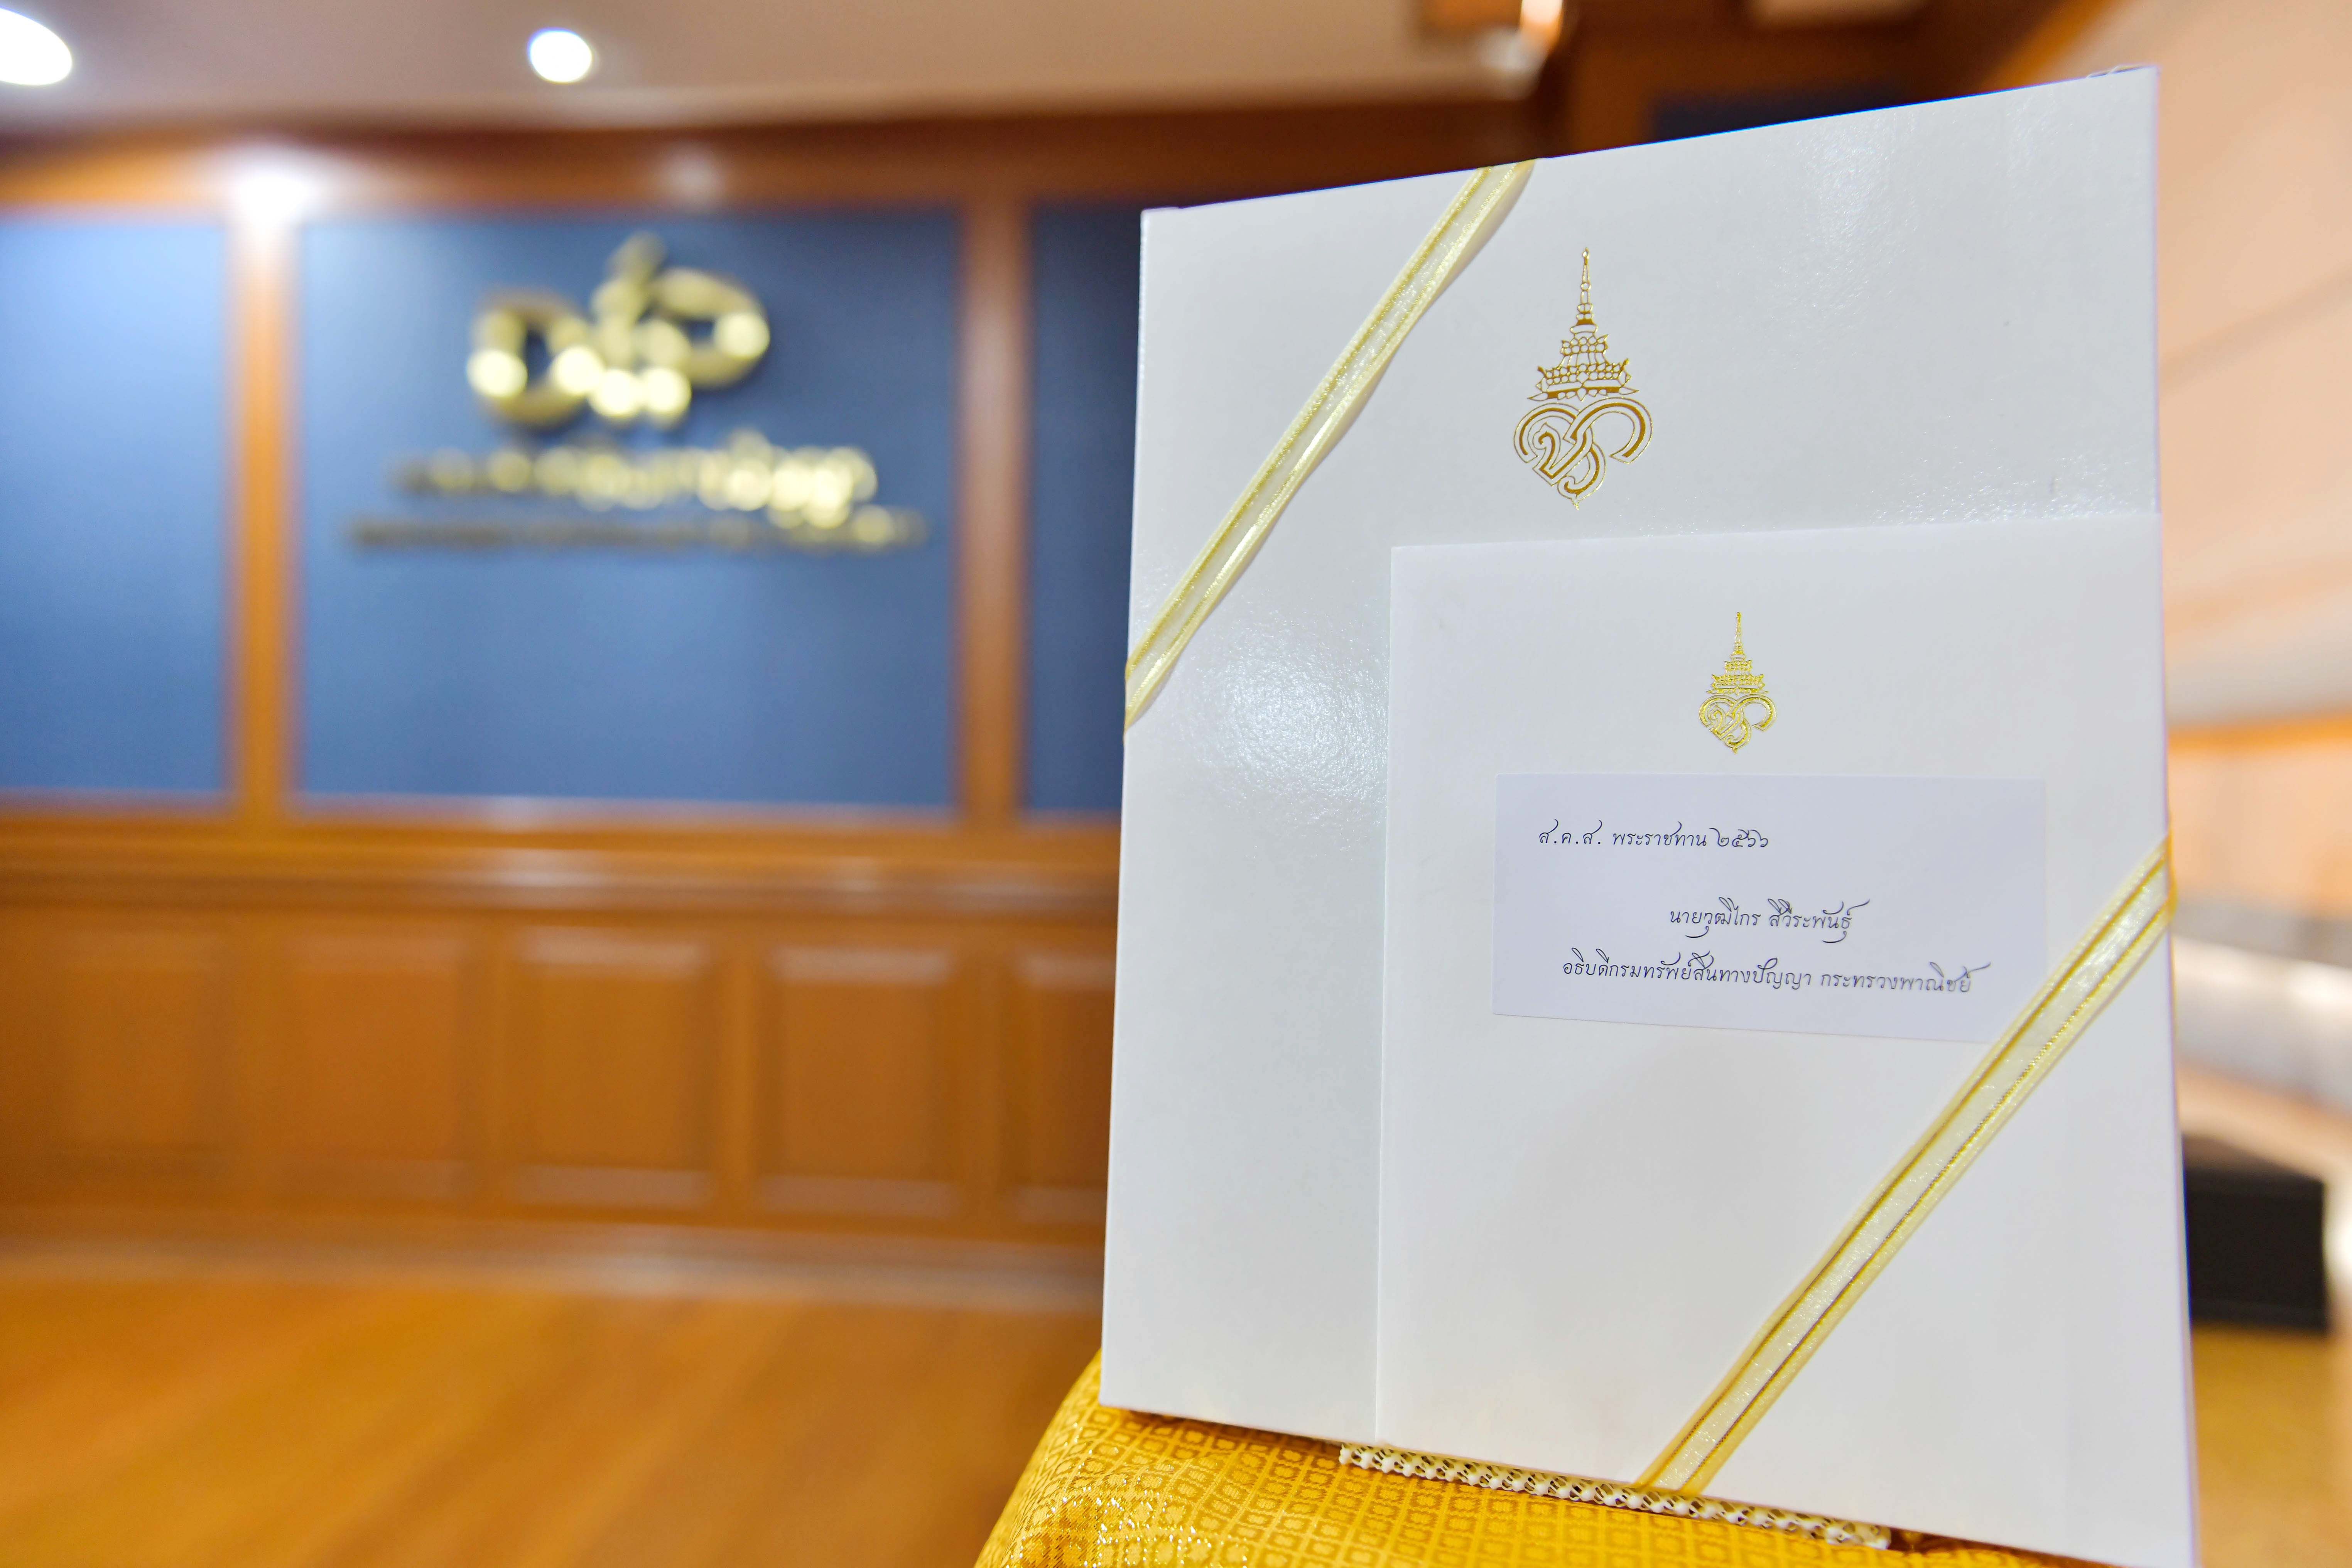 ส.ค.ส. พระราชทาน ๒๕๖๖
นายวุฒิไกร ลีวีระพันธุ์
อธิบดีกรมทรัพย์สินทางปัญญา กระทรวงพาณิชย์